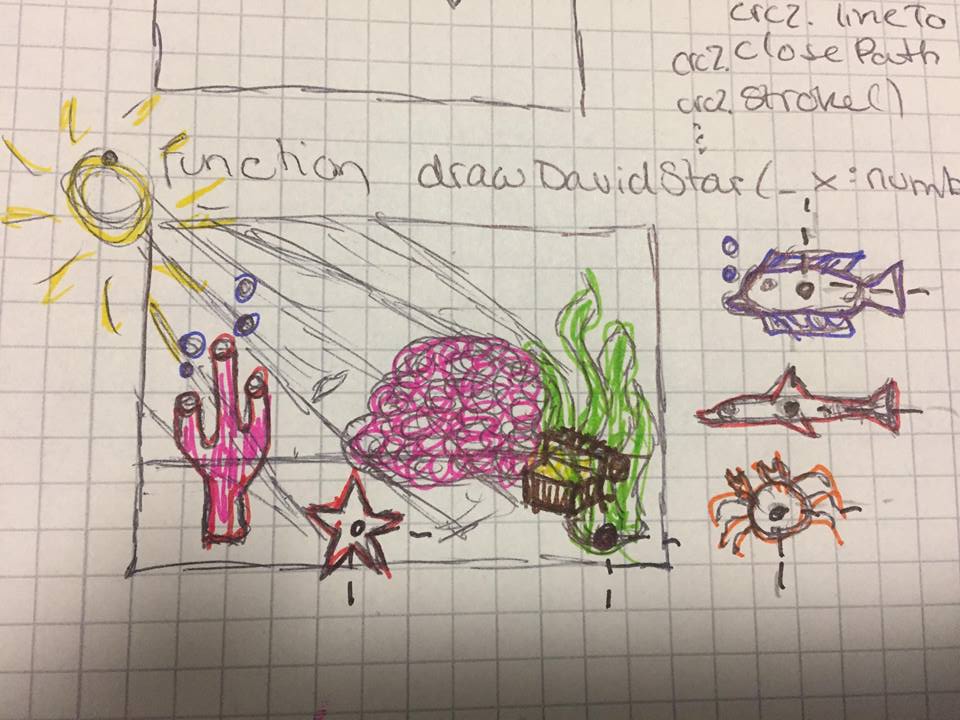 crc2. lineTo
crc2. ClosePath
crc2. Stroke()
function drawDavidStar(_x:numb